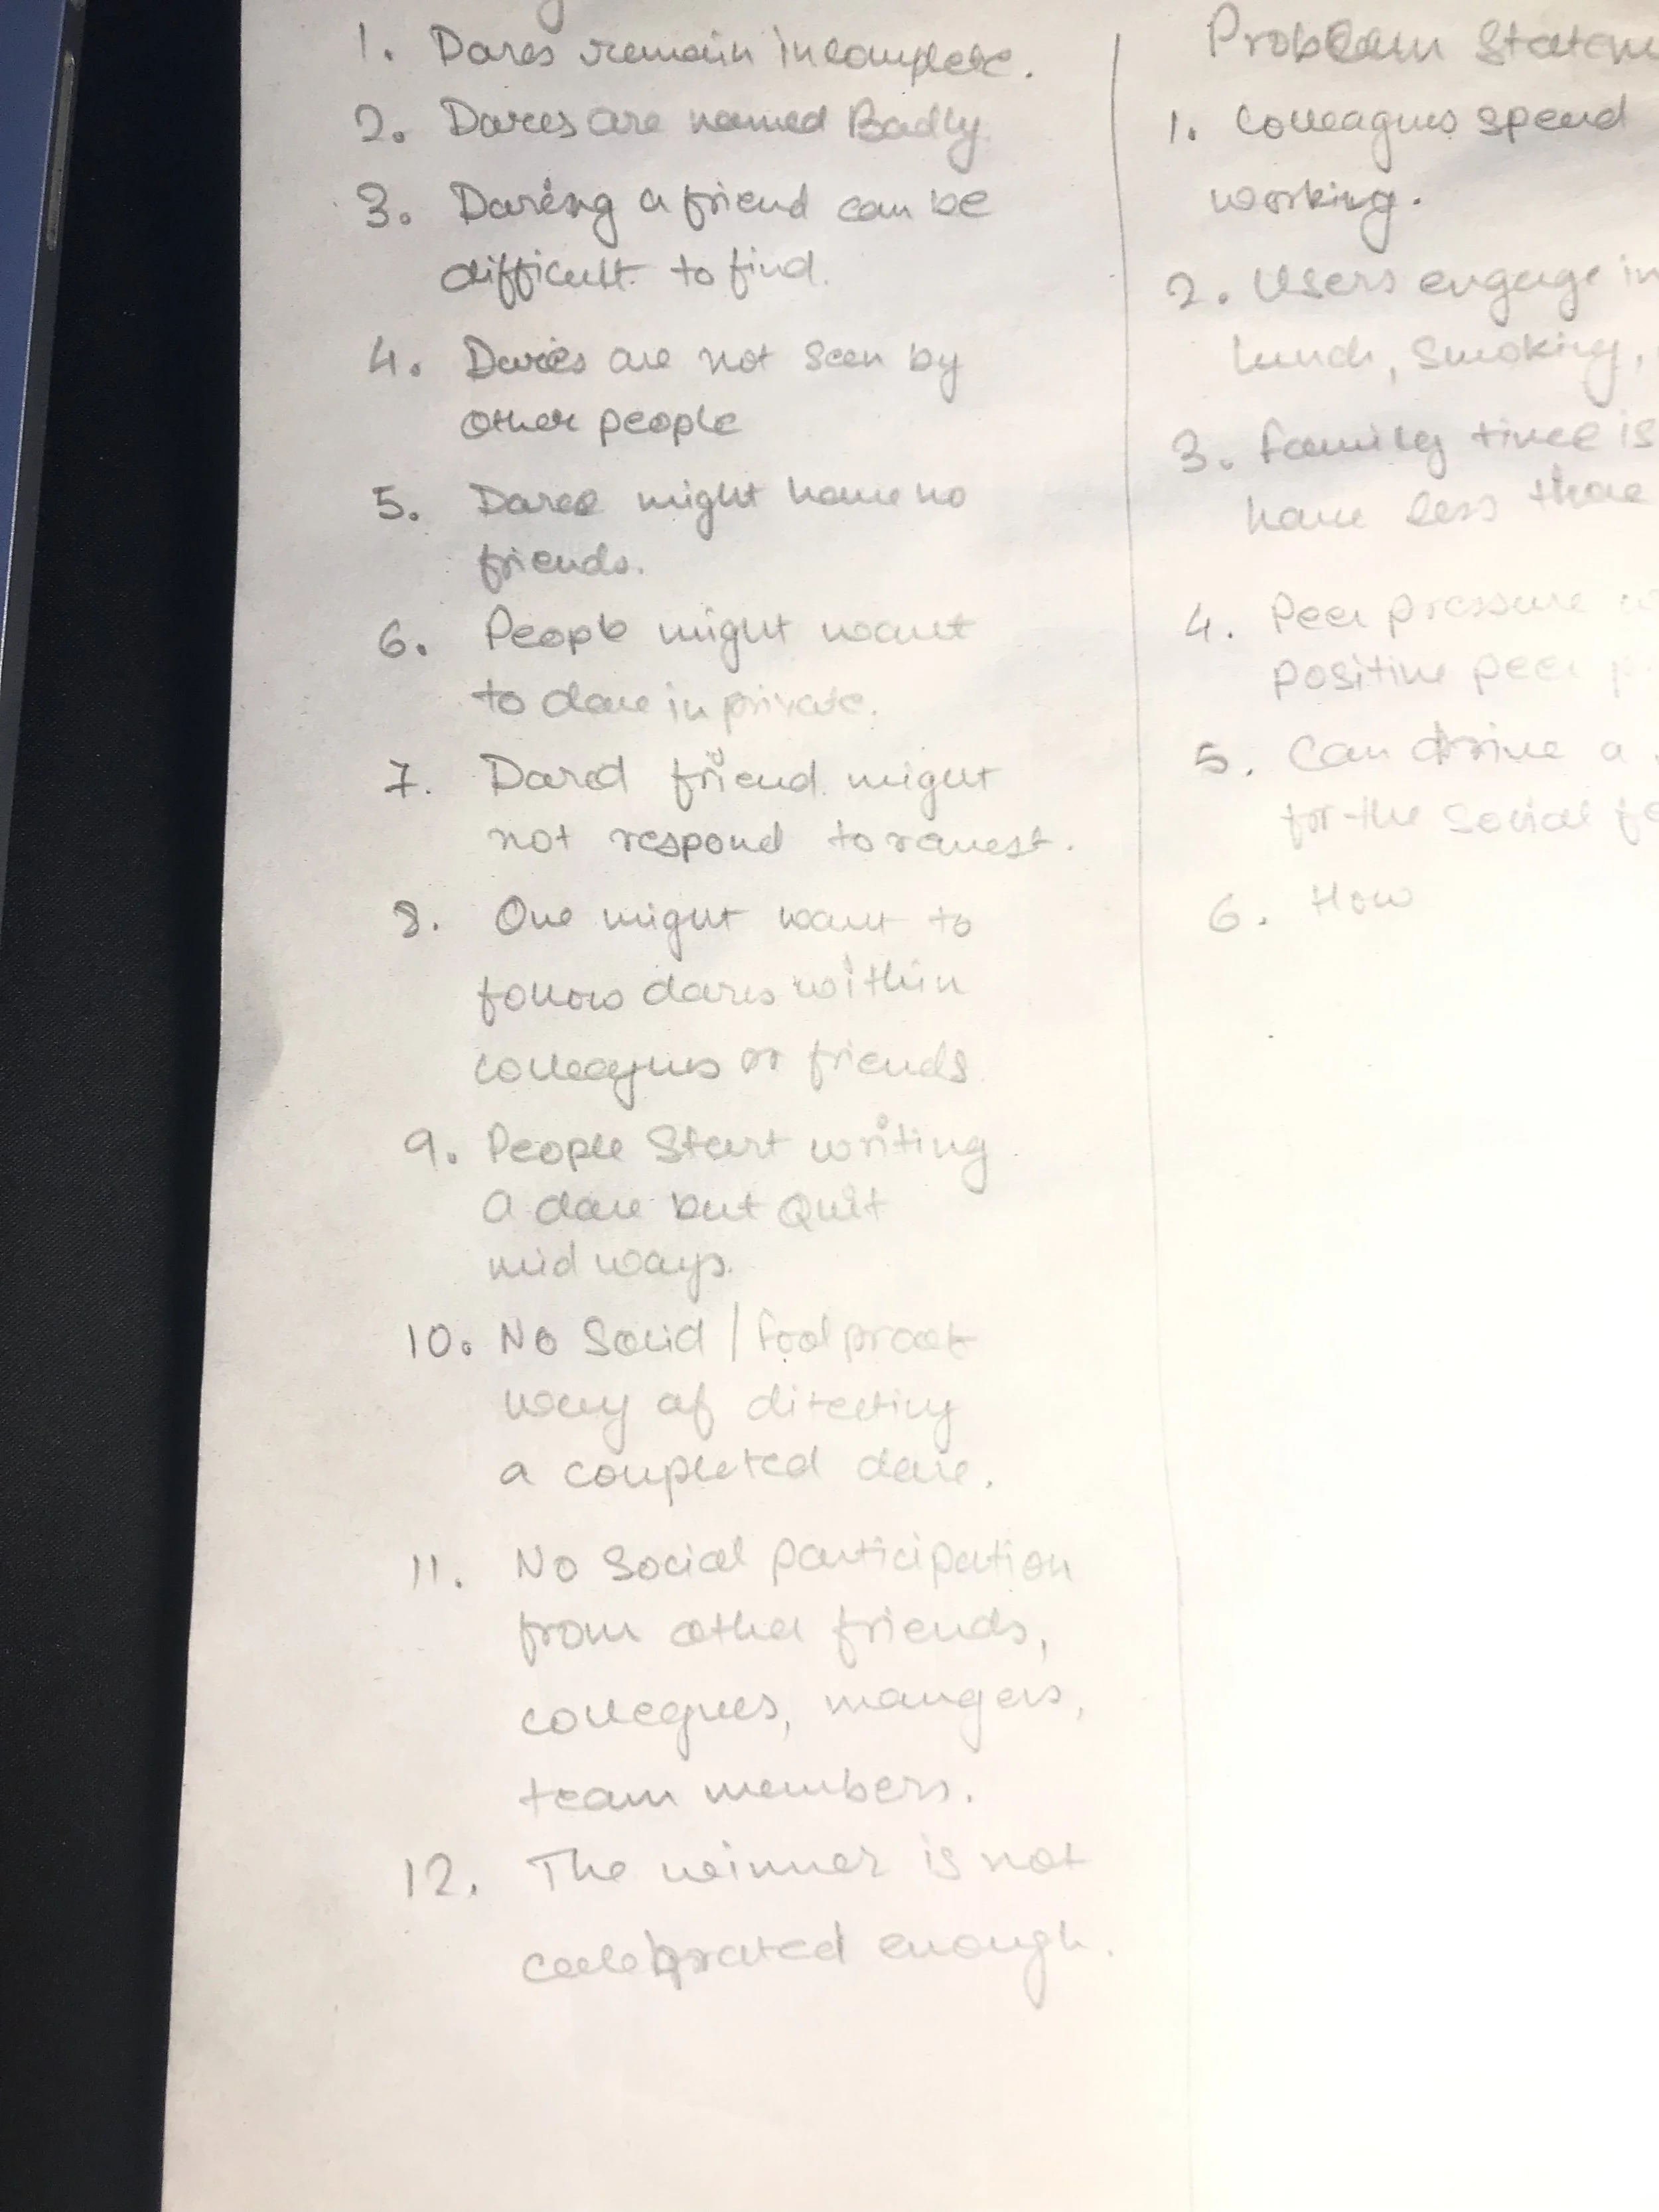 1. Dares remain incomplete.
2. Dares are named Badly.
3. Daring a friend can be
difficult to find.
4. Dares are not seen by
other people
5. Daree might have no
friends.
6. People might want
to dare in private.
7. Dared friend might
not respond to
8. One might want to
follow dares within
colleagues or friends
9. People Start writing
a dare but Quit
mid ways.
10. No Solid / foolproof
way of ditecting
a completed dare.
11. No Social participation
from other friends,
collegues, mangers,
team members.
12. The winner is not
celebrated enough.
Problem
1. Colleagues spend
working.
2. Users engage in
lunch, Smoking,
3. family time is
have less
4. Peer pressure
positive peer
5. Can drive a
for the Social
6. How